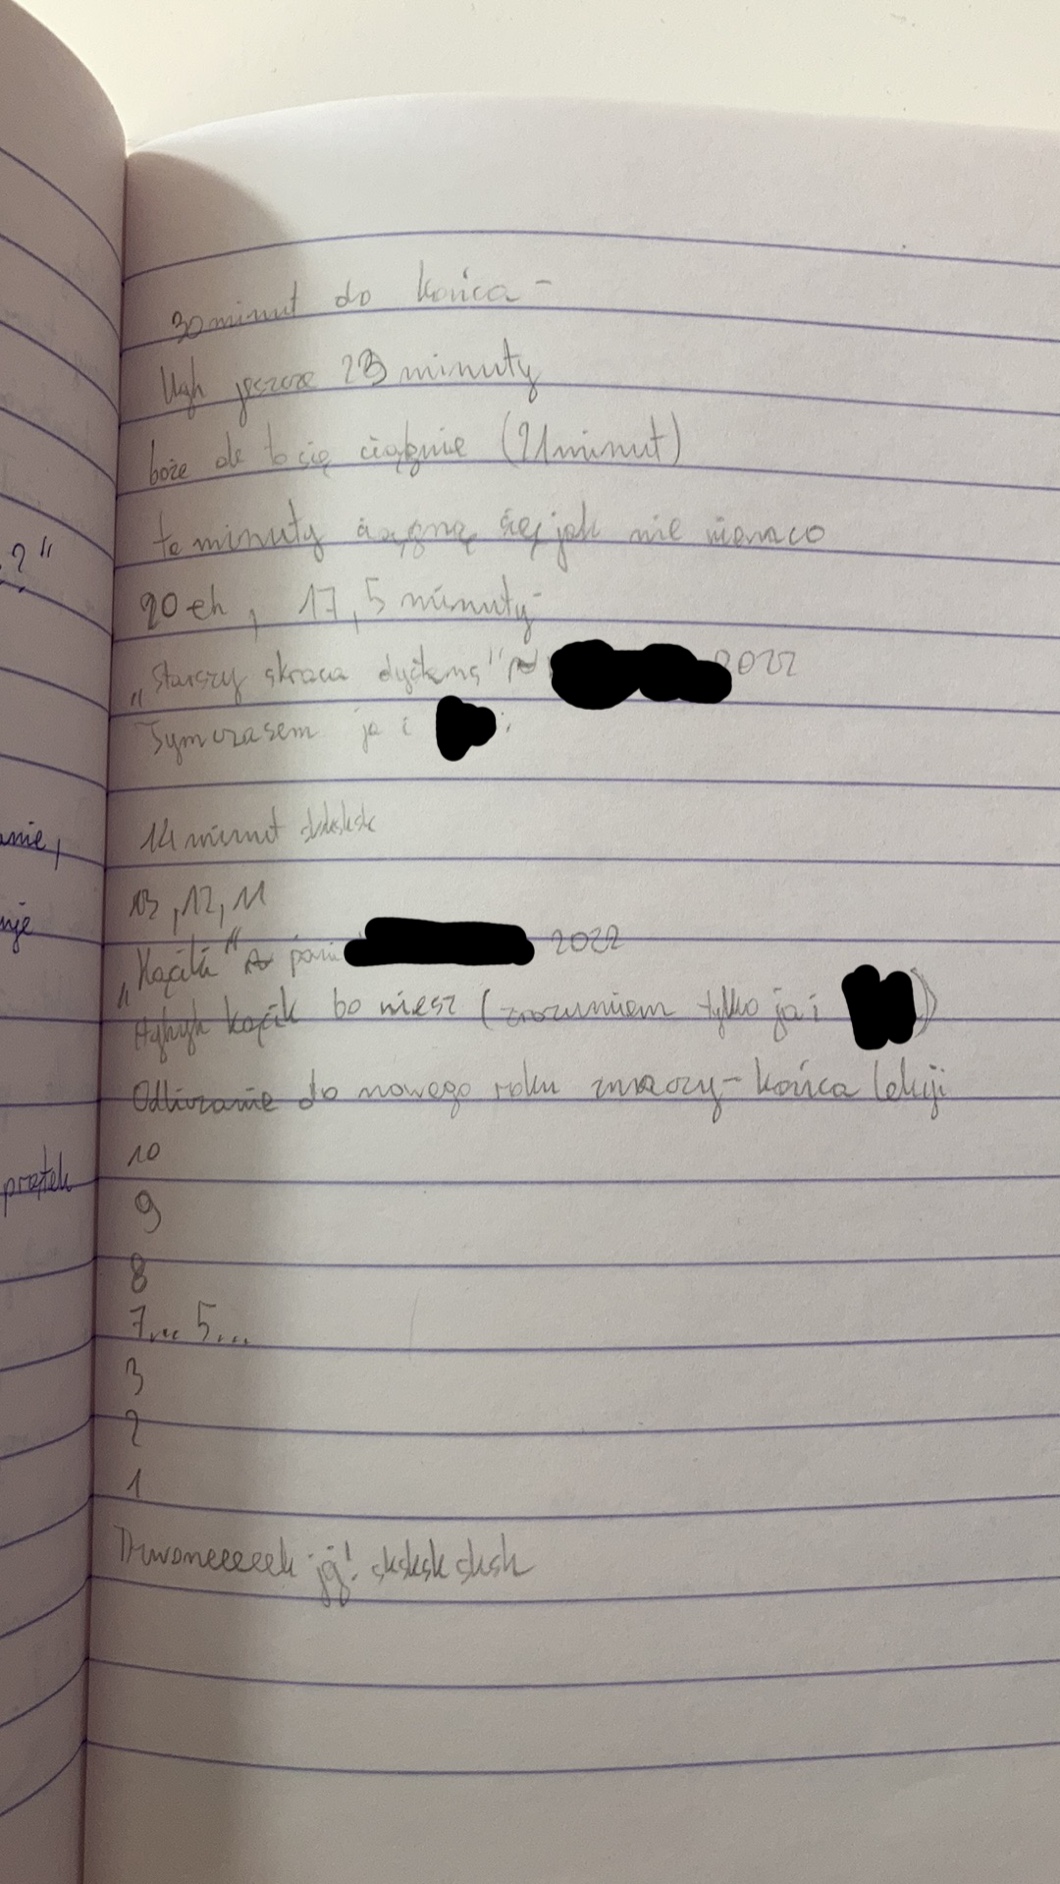 30 minut do końca -
Ugh jeszcze 23 minuty
boże ale to się ciągnie (21 minut)
te minuty ciągną się jak nie wiem co
20 eh, 17,5 minuty-
„Starszy skraca 2022
Tymczasem ja i :
14 minut sksksk
13, 12, 11
„Kącik" pani 2022
kącik bo wiesz (zrozumiem tylko ja i )
Odliczanie do nowego roku znaczy- końca lekcji
10
9
8
7... 5...
3
2
1
Dzwoneeeeek jej! sksksk sksk
? "
anie,
uje